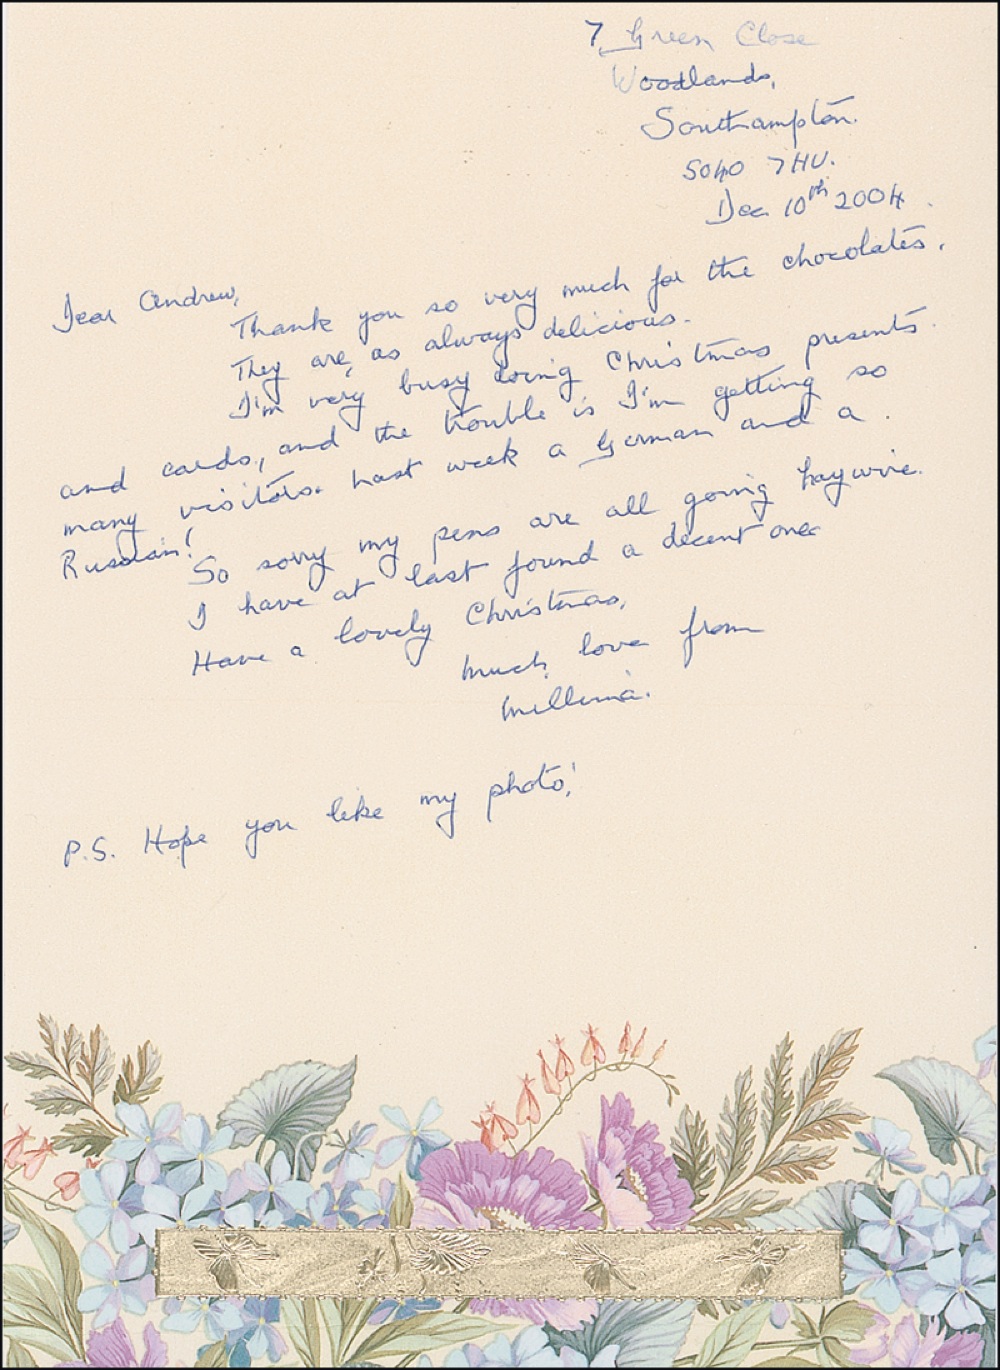 7 Green Close
Woodlands,
Southampton.
SO40 7HU.
Dec 10th 2004.
Dear Andrew,
Thank you so very much for the chocolates.
They are, as always delicious.
I'm very busy doing Christmas presents
and cards, and the trouble is I'm getting so
many visitors. Last week a German and a
Russian!
So sorry my pens are all going haywire.
I have at last found a decent one.
Have a lovely Christmas,
Much love from
Millvina.
P.S. Hope you like my photo!